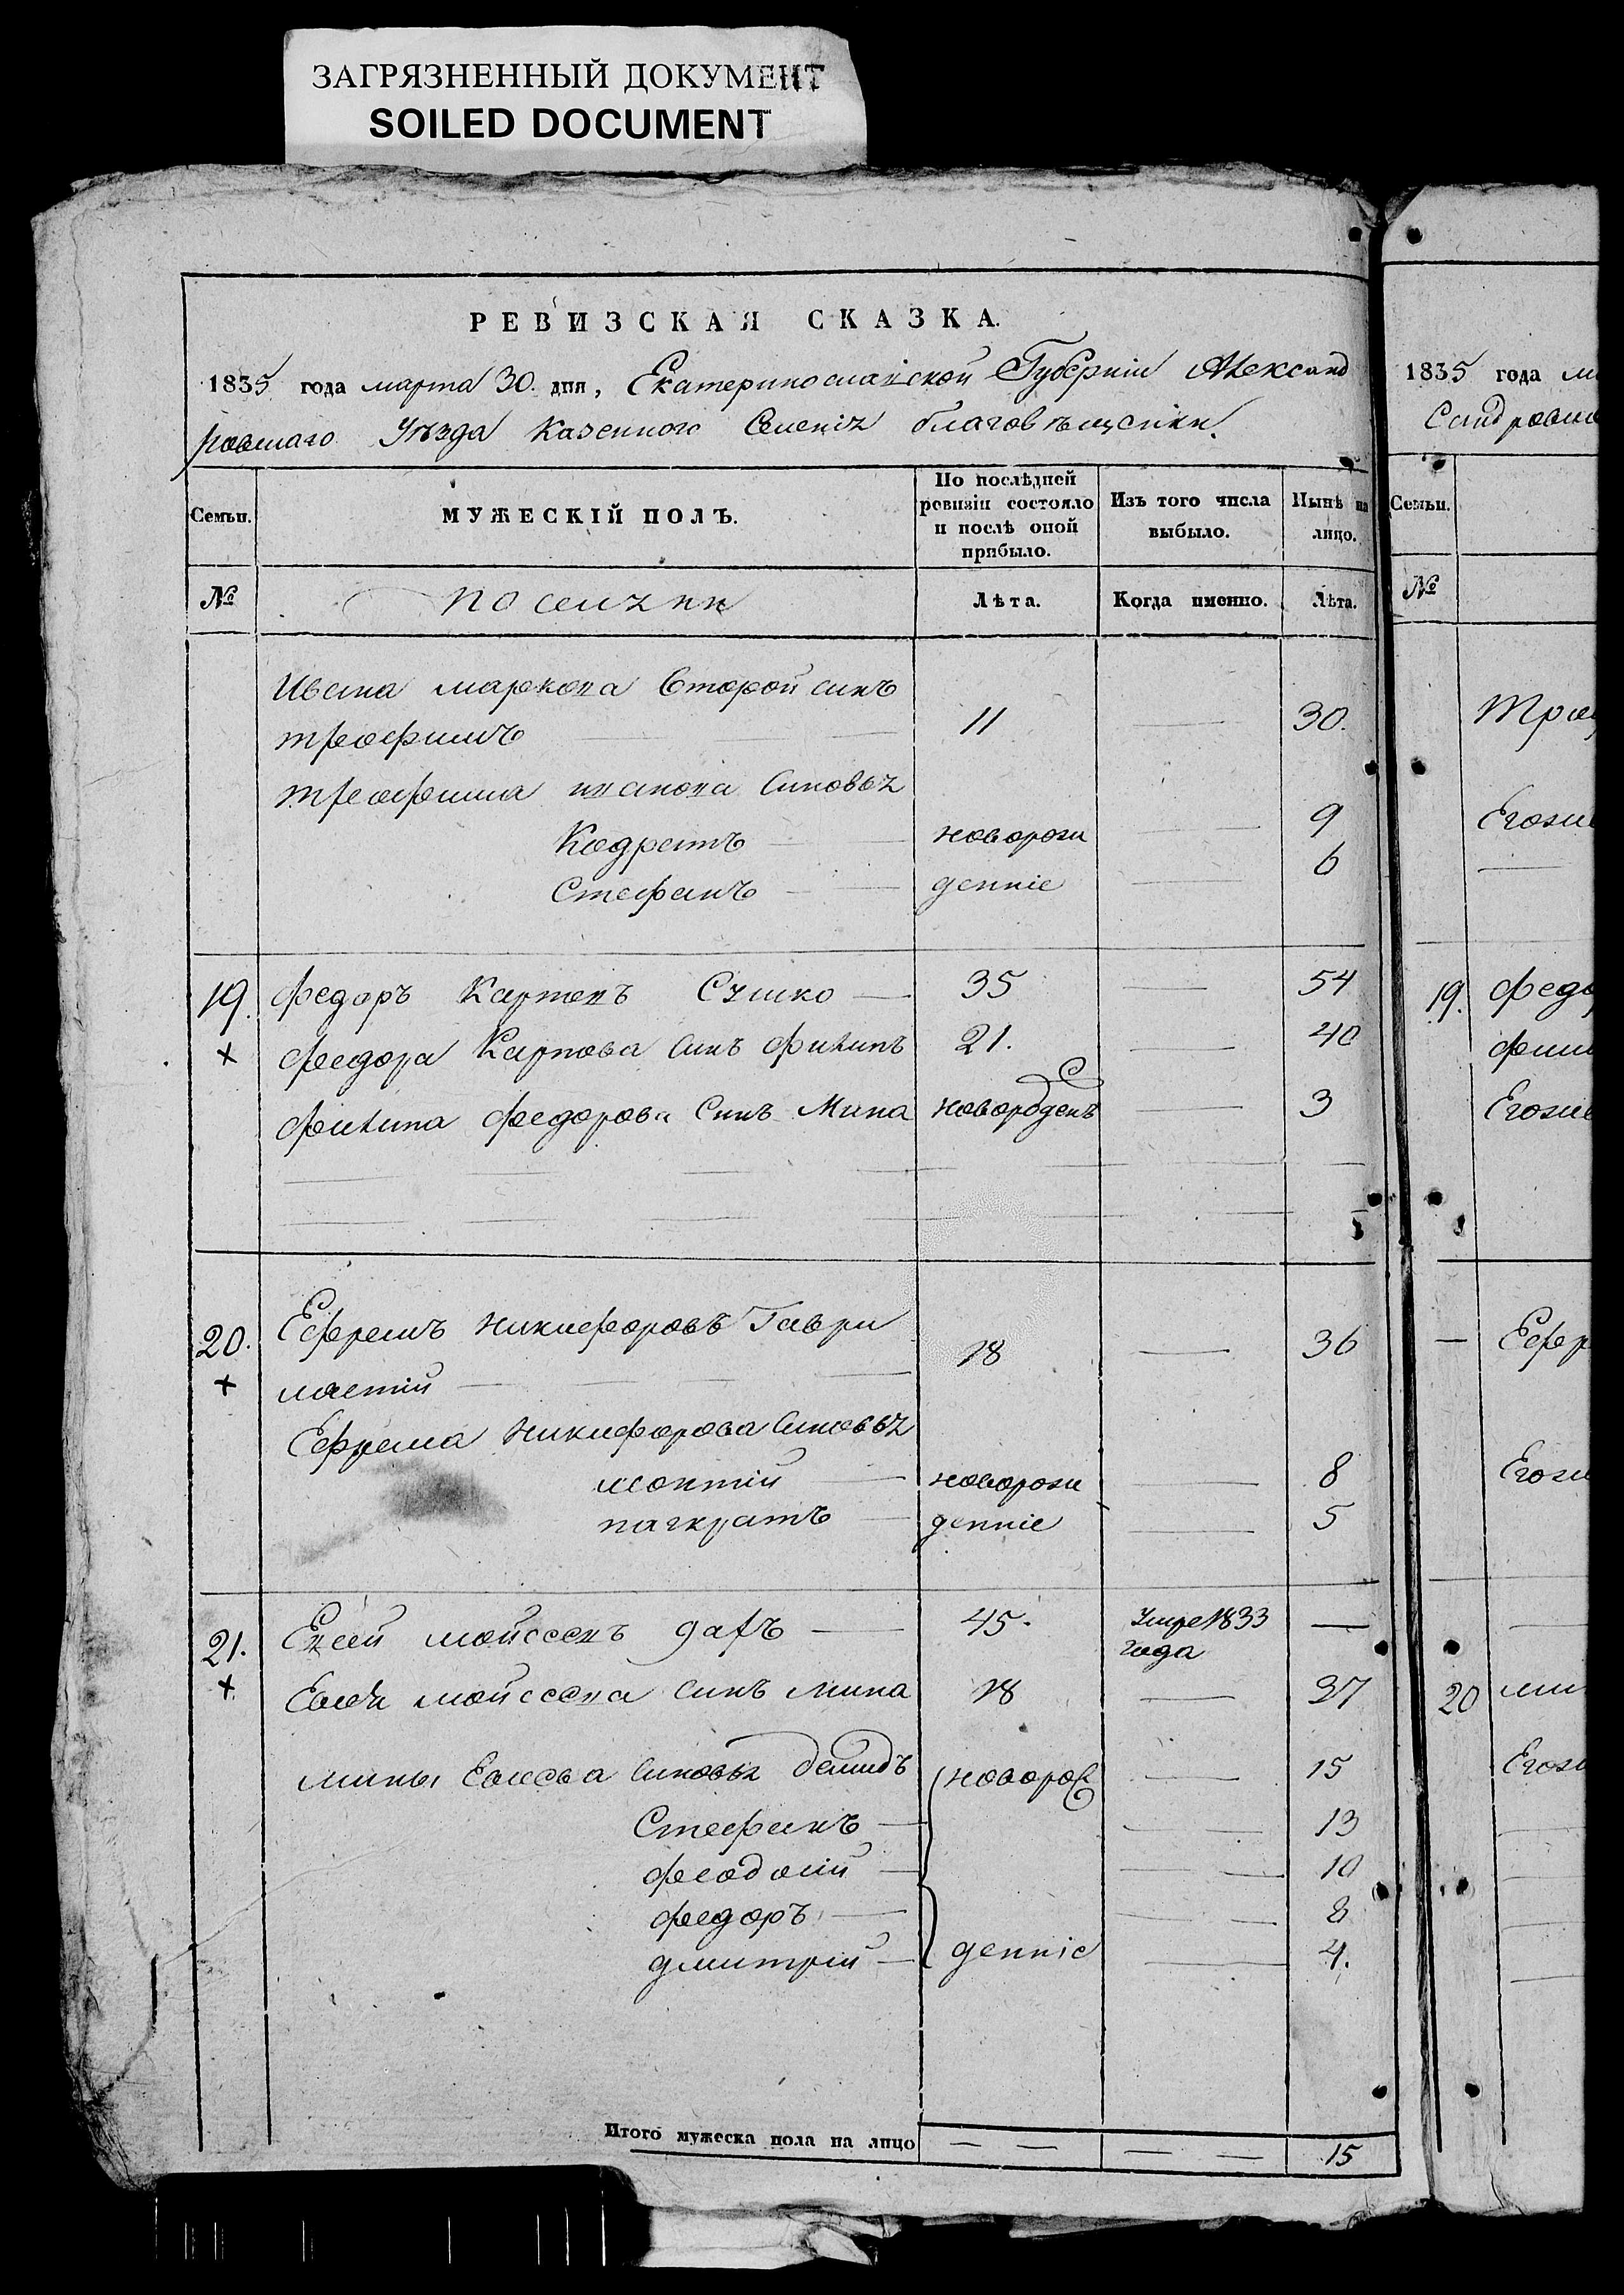 ЗАГРЯЗНЕННЫЙ ДОКУМЕНТ
SOILED DOCUMENT
РЕВИЗСКАЯ СКАЗКА.
1835 года марта 30. дня, Екатеринославской Губерніи Александ
ровскаго Уѣзда Казенного Селенія благовѣщенки.
Семьи. МУЖЕСКІЙ ПОЛЪ. По послѣдней ревизіи состояло и послѣ оной прибыло. Изъ того числа выбыло. Нынѣ на лицо.
№ поселяни Лѣта. Когда именно. Лѣта.
Ивана маркова Второй синъ
трофимъ 11 30.
трофима иванова Синовья
Кодратъ новорож 9
Стефанъ денніе 6
19. Федоръ Карповъ Сушко 35 54
+ Федора Карпова Синъ Филипъ 21. 40
Филипа Федорова Синъ Мина новорожденъ 3
20. Ефремъ Никифоровъ Гаври 18 36
+ ластій
Ефрема Никифорова Синовья
леонтій новорож 8
пагкратъ денніе 5
21. Евсей мойсеевъ 45. Умре 1833 года
+ Евсея мойсеева синъ мина 18 37
мины Евсеева Синовья демидъ новорож 15
Стефанъ 13
феодосій 10
федоръ 8
дмитрій денніе 4.
Итого мужеска пола на лицо 15
1835 года
Семьи.
№
19.
20